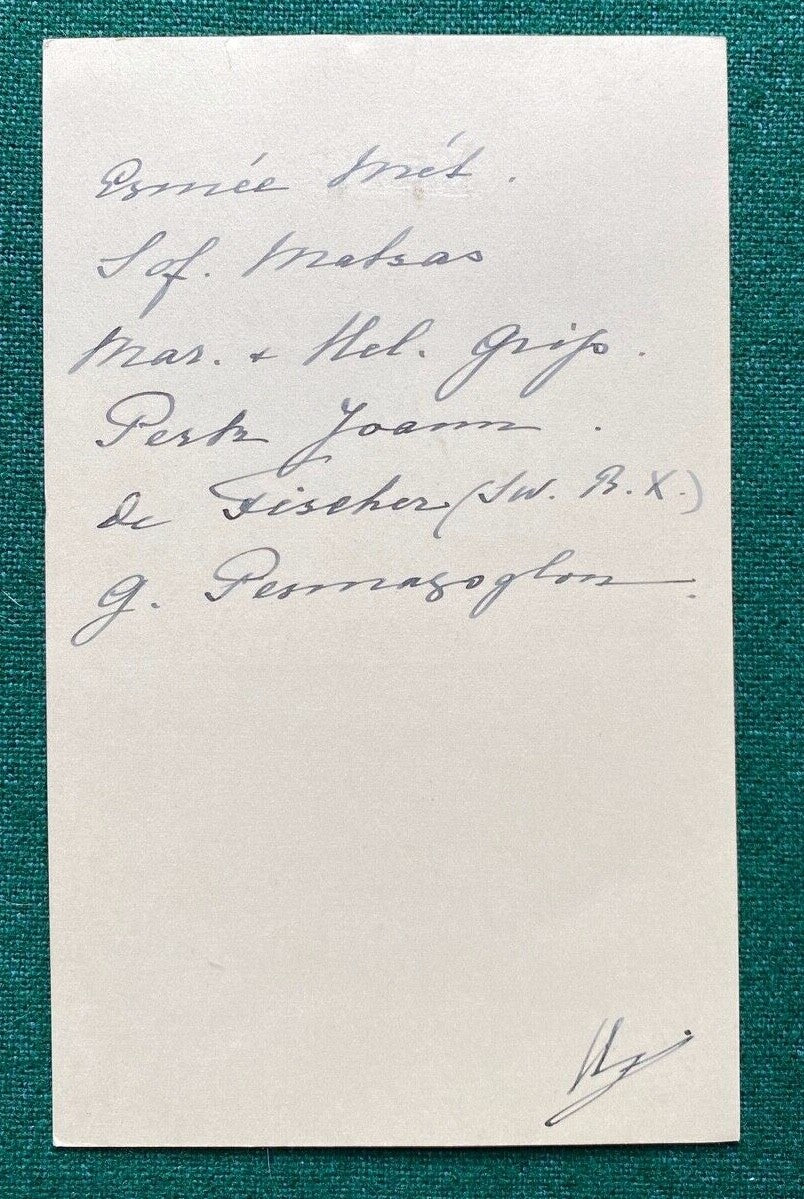 Esmée Mét.
Sof. Matsas
Mar. + Hel. Grip.
Joann.
de Fischer (Sw. R. X.)
G. Pesmazoglou.